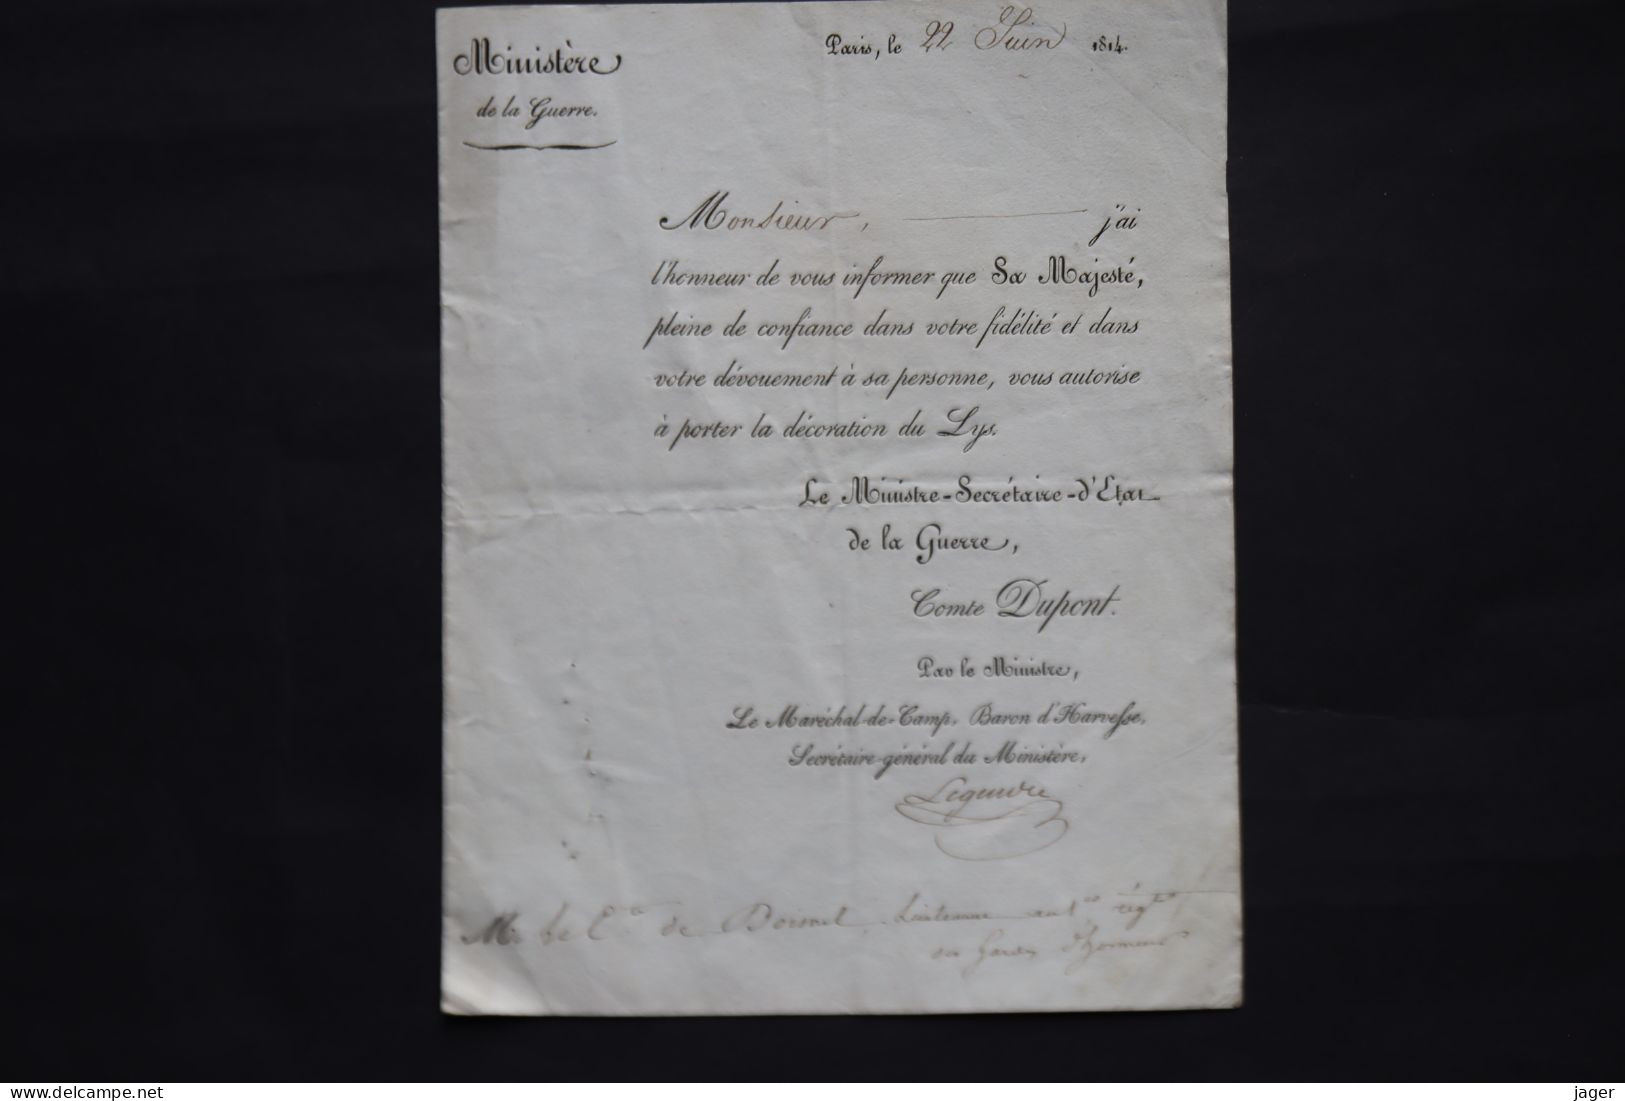 Ministère
de la Guerre.
Paris, le 22 Juin 1814.
Monsieur, j'ai
l'honneur de vous informer que Sa Majesté,
pleine de confiance dans votre fidélité et dans
votre dévouement à sa personne, vous autorise
à porter la décoration du Lys.
Le Ministre-Secrétaire-d'Etat
de la Guerre,
Comte Dupont.
Par le Ministre,
Le Maréchal-de-Camp, Baron d'Harvesse,
Secrétaire-général du Ministère,
Mr. le Cte de Lieutenant au 1er régt
des Gardes d'honneur
www.delcampe.net
jager